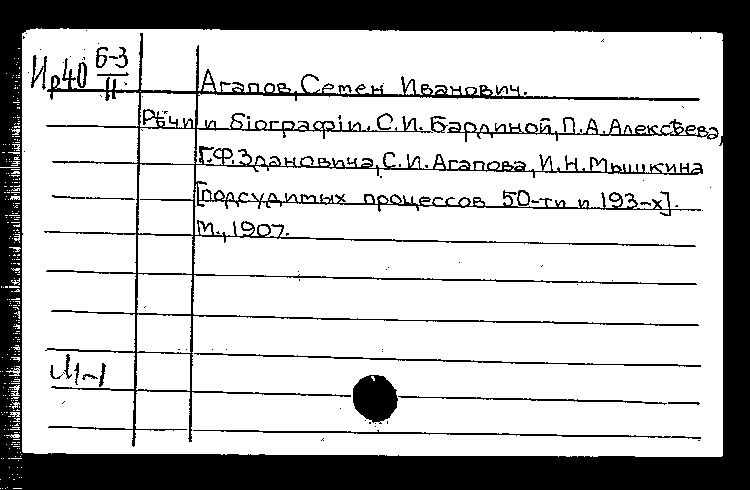 Ир40 6-3/II
Агапов, Семен Иванович.
Рѣчи и біографіи. С.И. Бардиной, П.А. Алексѣева,
Г.Ф. Здановича, С.И. Агапова, И.Н. Мышкина
[подсудимых процессов 50-ти и 193-х].
М., 1907.
М-1